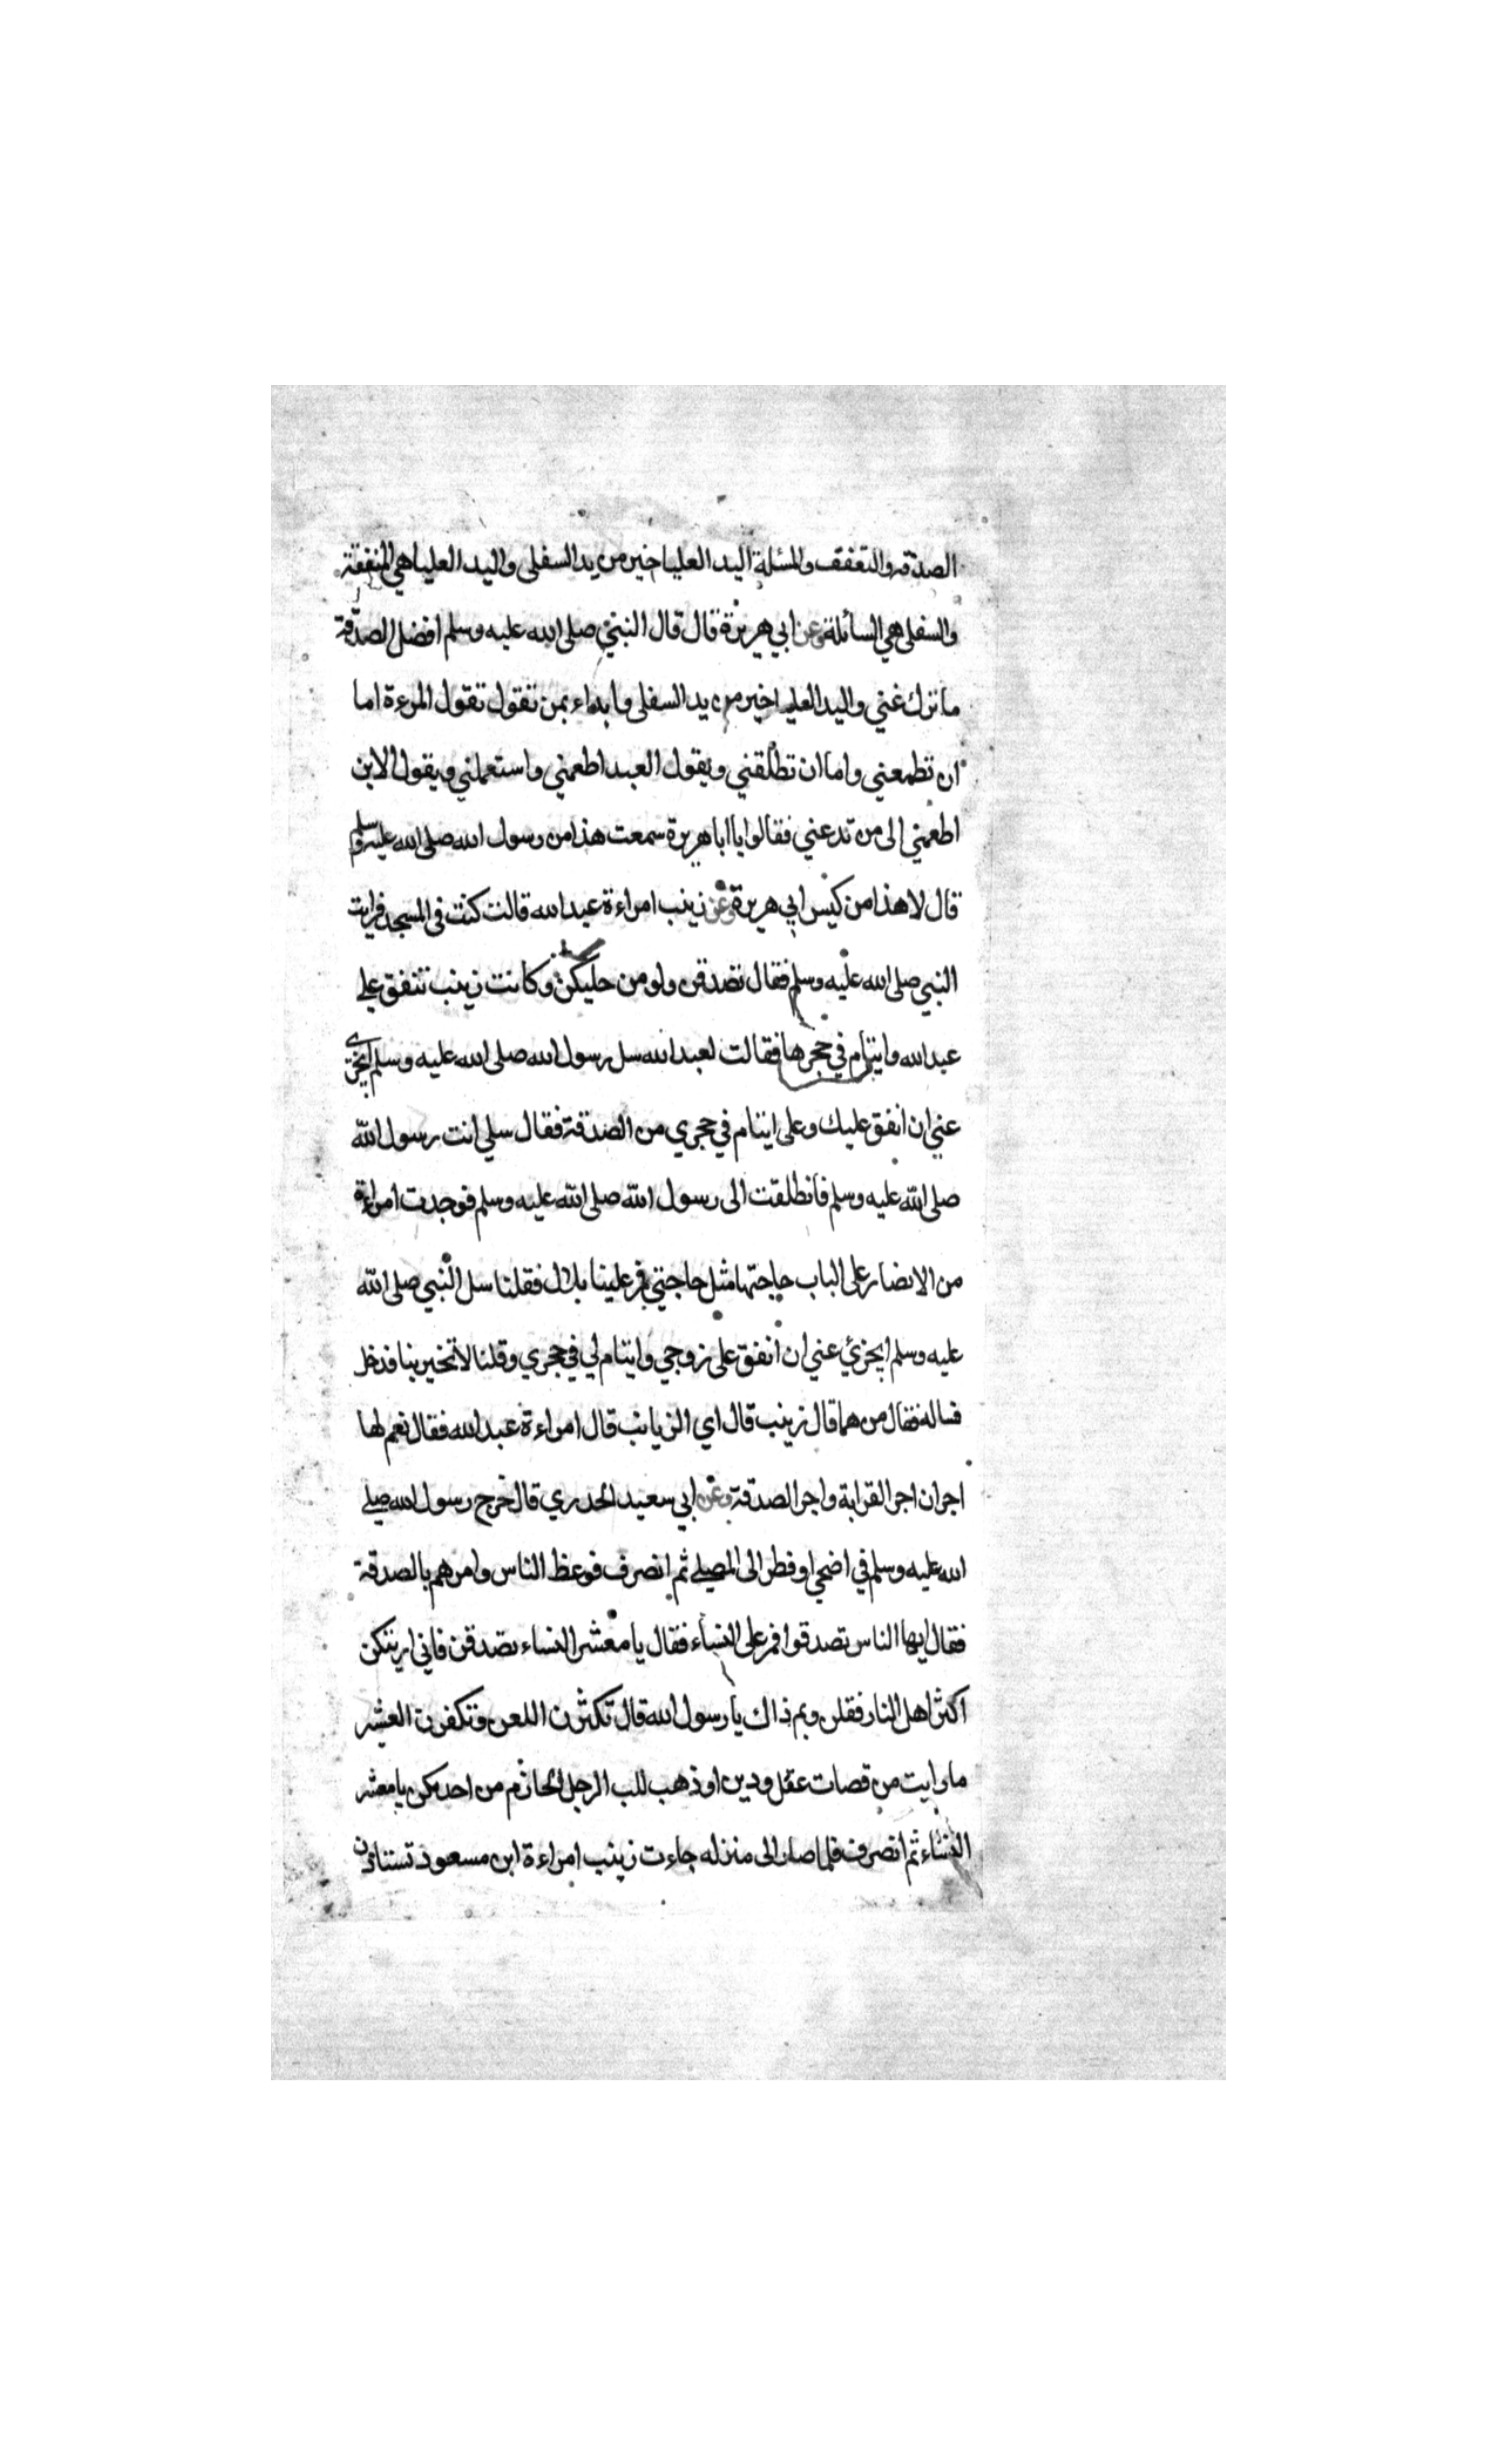 الصدقة والتعفف والمسئلة اليد العليا خير من يد السفلى واليد العليا هي المنفقة
والسفلى هي السائلة وعن ابي هريرة قال قال النبي صلى الله عليه وسلم افضل الصدقة
ما ترك غني واليد العليا خير من يد السفلى وابداء بمن تقول تقول المرءة اما
ان تطمعني واما ان تطلقني ويقول العبد اطعمني واستعملني ويقول الابن
اطعمني الى من تدعني فقالوا يا ابا هريرة سمعت هذا من رسول الله صلى الله عليه وسلم
قال لا هذا من كيس ابي هريرة وعن زينب امراءة عبد الله قالت كنت في المسجد فرايت
النبي صلى الله عليه وسلم فقال تصدقن ولو من حليكن وكانت زينب تنفق على
عبد الله وايتام في حجرها فقالت لعبد الله سل رسول الله صلى الله عليه وسلم ايجزي
عني ان انفق عليك وعلى ايتام في حجري من الصدقة فقال سلي انت رسول الله
صلى الله عليه وسلم فانطلقت الى رسول الله صلى الله عليه وسلم فوجدت امراءة
من الانصار على الباب حاجتها مثل حاجتي فمر علينا بلال فقلنا سل النبي صلى الله
عليه وسلم ايجزئ عني ان انفق على زوجي وايتام لي في حجري وقلنا لا تخير بنا فدخل
فساله فقال من هما قال زينب قال اي الزيانب قال امراءة عبد الله فقال نعم لها
اجران اجر القرابة واجر الصدقة وعن ابي سعيد الخدري قال خرج رسول الله صلى
الله عليه وسلم في اضحى او فطر الى المصلى ثم انصرف فوعظ الناس وامرهم بالصدقة
فقال ايها الناس تصدقوا فمر على النساء فقال يا معشر النساء تصدقن فاني اريتكن
اكثر اهل النار فقلن وبم ذاك يا رسول الله قال تكثرن اللعن وتكفرن العشير
ما رايت من قصات عقل ودين او ذهب للب الرجل الحازم من احدىكن يا معشر
النساء ثم انصرف فلما صار الى منزله جاءت زينب امراءة ابن مسعود تستاذن